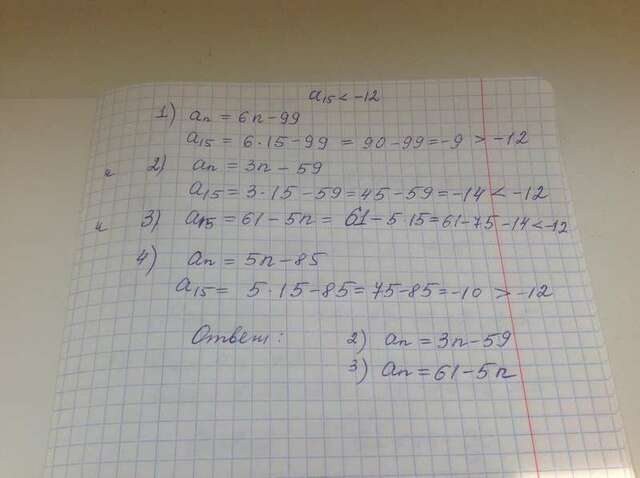 a₁₅ < -12
1) aₙ = 6n - 99
a₁₅ = 6·15 - 99 = 90 - 99 = -9 > -12
2) aₙ = 3n - 59
a₁₅ = 3·15 - 59 = 45 - 59 = -14 < -12
3) a₁₅ = 61 - 5n = 61 - 5·15 = 61 - 75 - 14 < -12
4) aₙ = 5n - 85
a₁₅ = 5·15 - 85 = 75 - 85 = -10 > -12
Ответ: 2) aₙ = 3n - 59
3) aₙ = 61 - 5n